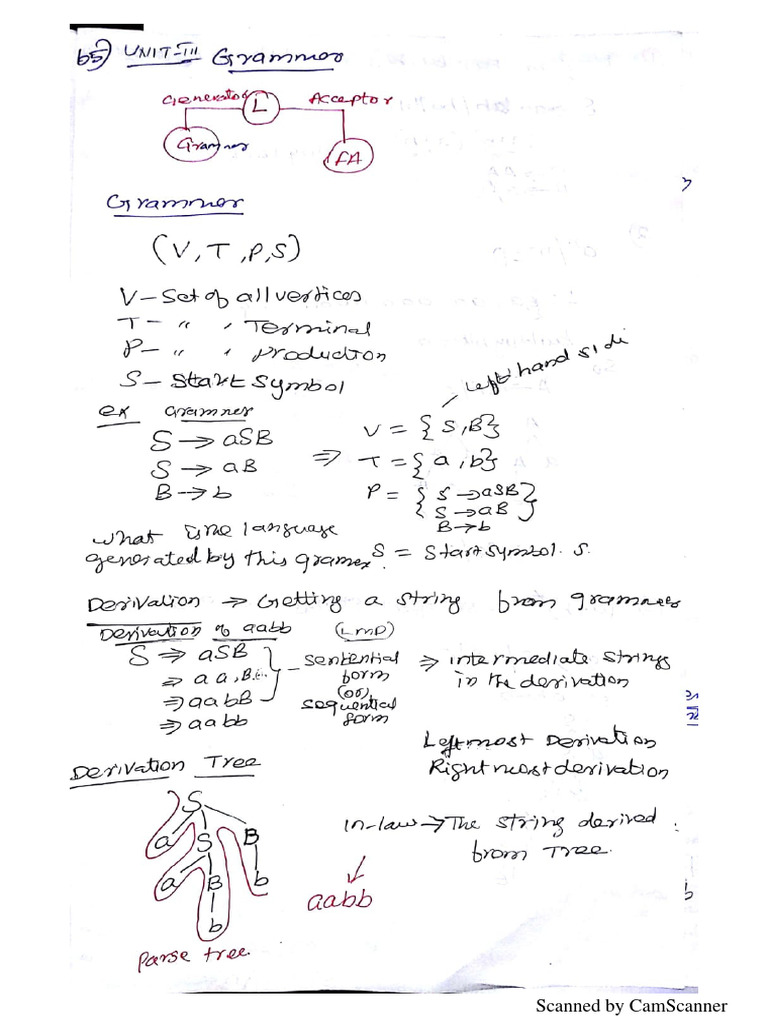 65) UNIT-III Grammer
Generator L Acceptor
Grammer FA
Grammer
(V, T, P, S)
V - Set of all vertices
T - " , Terminal
P - " , Production
S - Start Symbol
Left hand side
ex Grammer
S → aSB
S → aB
B → b
⇒ V = {S, B}
T = {a, b}
P = {S → aSB
S → aB}
B → b
S = Start symbol S.
What is the language
generated by this gramer
Derivation ⇒ Getting a string from grammer
Derivation of aabb (LMD)
S ⇒ aSB
⇒ aaB
⇒ aabB
⇒ aabb
sentential
form
(or)
sequential
form
⇒ intermediate strings
in the derivation
Leftmost Derivation
Rightmost derivation
Derivation Tree
S
a S B
a B b
b
Parse tree
in-law → The string derived
from Tree.
aabb
Scanned by CamScanner